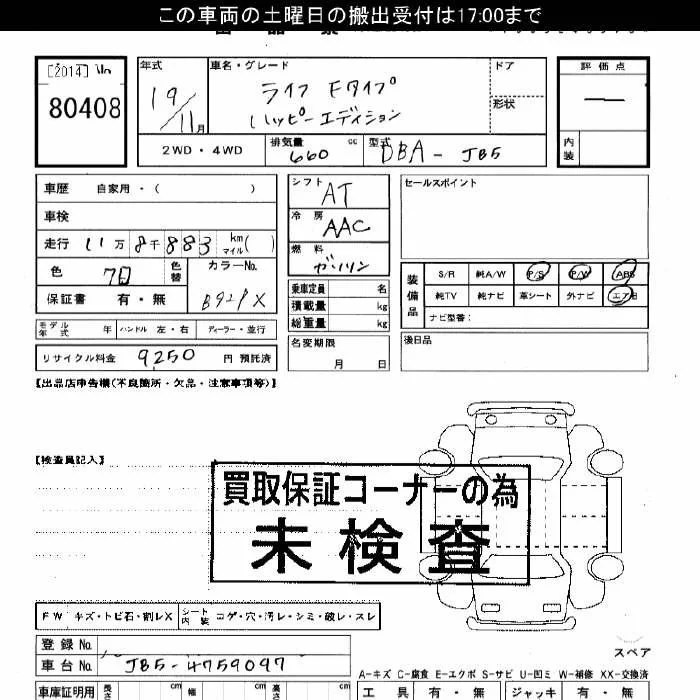 この車両の土曜日の搬出受付は17:00まで
[2014] No
80408
年式 車名・グレード ドア 評価点
19/11月 ライフ Fタイプ
ハッピーエディション 形状
2WD・4WD 排気量 660 cc 型式 DBA-JB5 内装
車歴 自家用・( )
車検
走行 11万8千883 km マイル( )
色 色替 カラーNo.
保証書 有・無
モデル年式 年 ハンドル 左・右 ディーラー・並行
リサイクル料金 9250 円 預託済
シフト AT
冷房 AAC
燃料 ガソリン
乗車定員 名
積載量 kg
総重量 kg
名変期限
月 日
セールスポイント
装備品 S/R 純A/W P/S P/W ABS
純TV 純ナビ 革シート 外ナビ エアB
ナビ型番:
後日品
【出品店申告欄(不良箇所・欠品・注意事項等)】
【検査員記入】
買取保証コーナーの為
未検査
FW キズ・トビ石・割レX シート内装 コゲ・穴・汚レ・シミ・破レ・スレ
登録No.
車台No. JB5-4759097
スペア
A-キズ C-腐食 E-エクボ S-サビ U-凹ミ W-補修 XX-交換済
車庫証明用 長さ cm 幅 cm 高さ cm 工具 有・無 ジャッキ 有・無